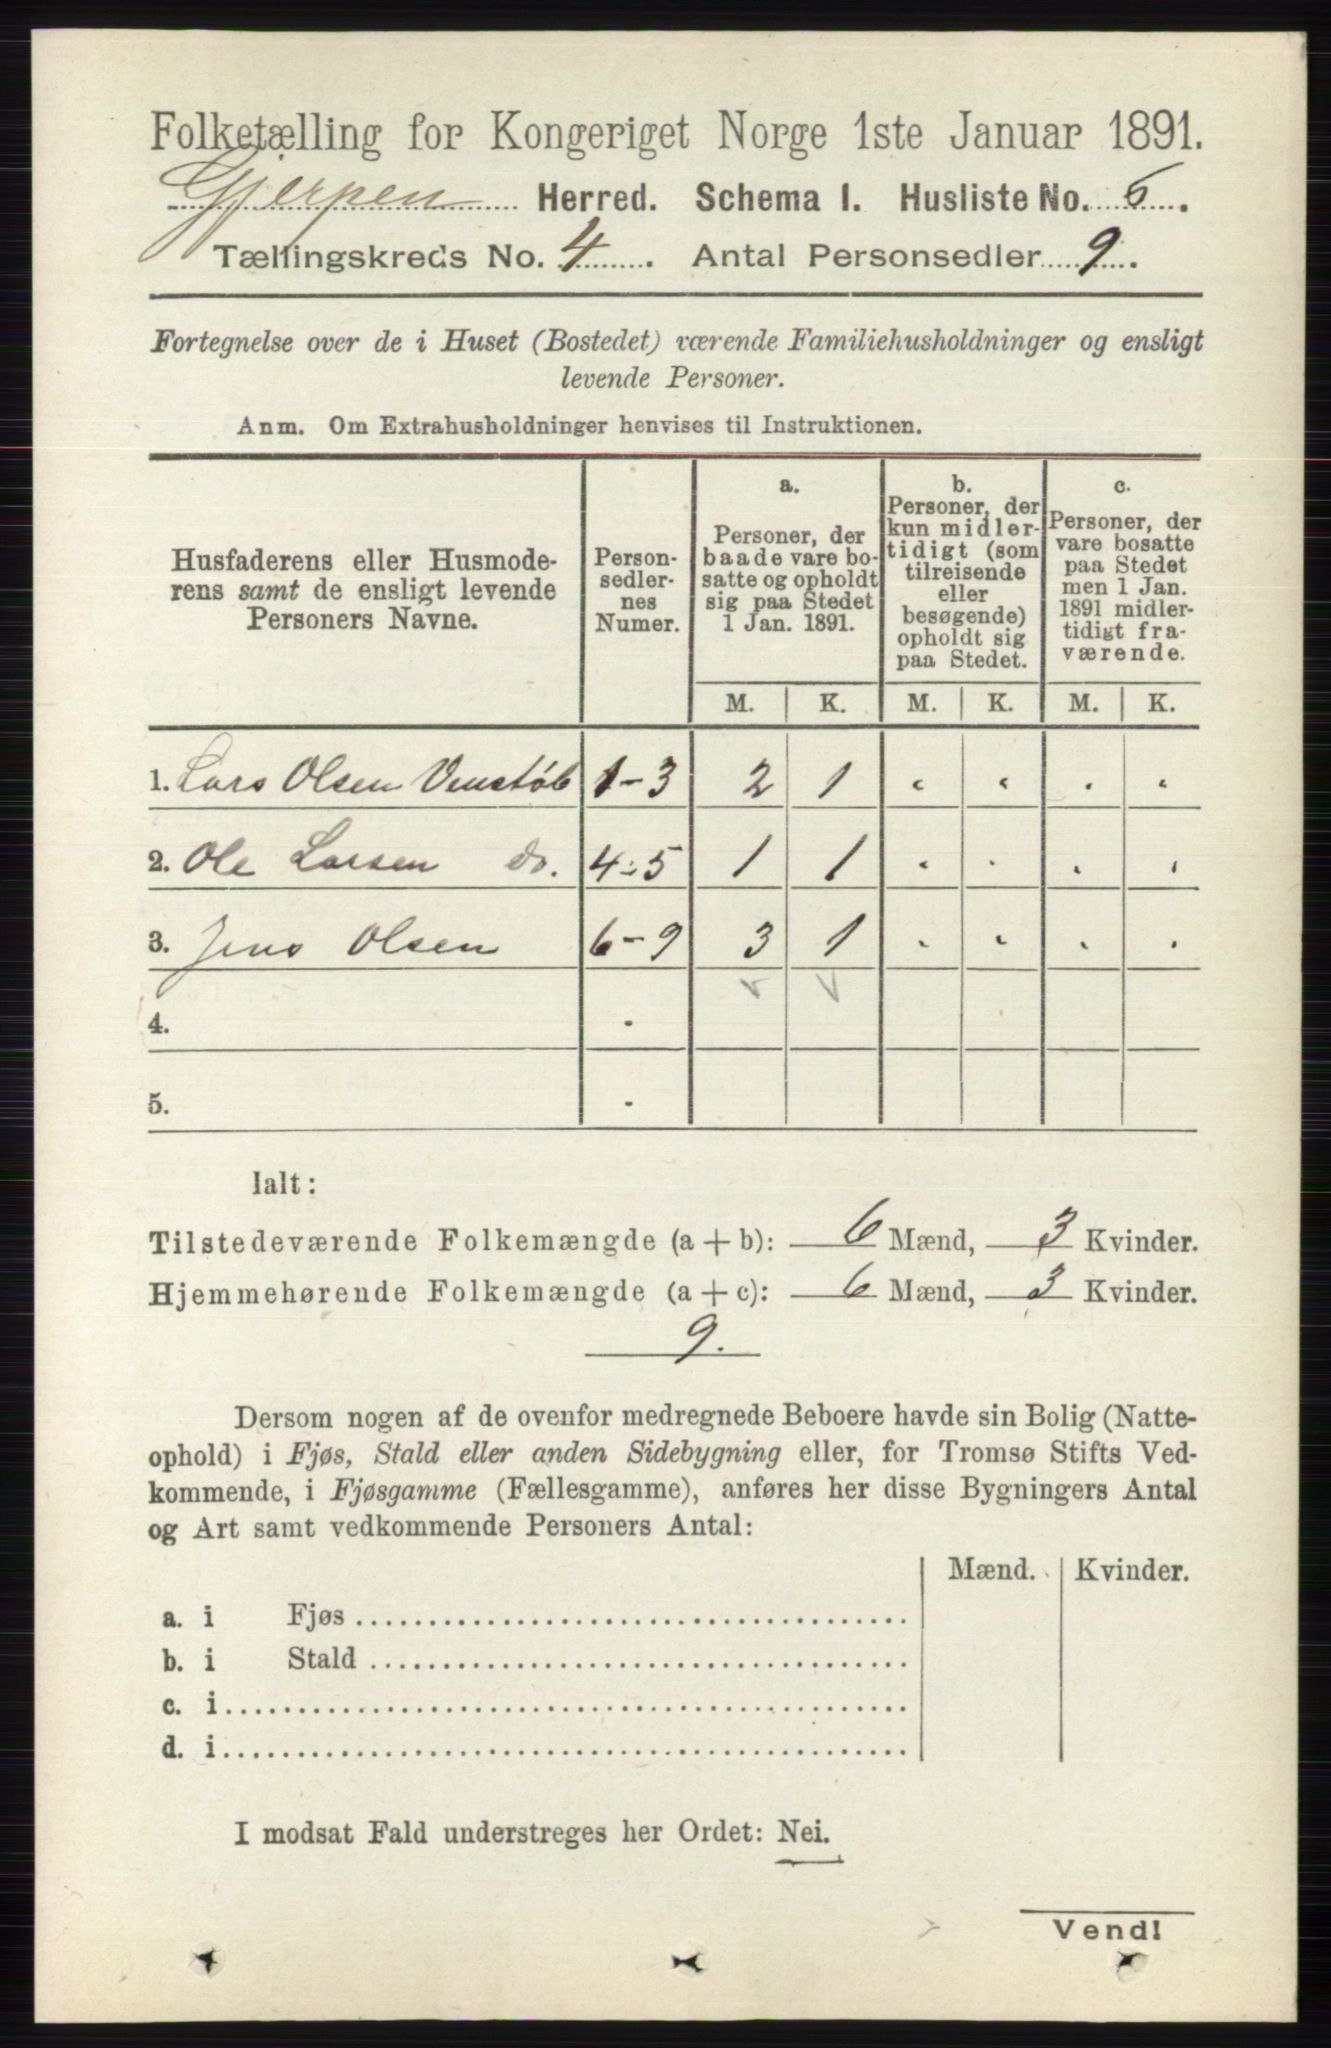 Folketælling for Kongeriget Norge 1ste Januar 1891.
Gjerpen Herred. Schema I. Husliste No. 6.
Tællingskreds No. 4. Antal Personsedler 9.
Fortegnelse over de i Huset (Bostedet) værende Familiehusholdninger og ensligt
levende Personer.
Anm. Om Extrahusholdninger henvises til Instruktionen.
Husfaderens eller Husmode-
rens samt de ensligt levende
Personers Navne.
Person-
sedler-
nes
Numer.
a.
Personer, der
baade vare bo-
satte og opholdt
sig paa Stedet
1 Jan. 1891.
b.
Personer, der
kun midler-
tidigt (som
tilreisende
eller
besøgende)
opholdt sig
paa Stedet.
c.
Personer, der
vare bosatte
paa Stedet
men 1 Jan.
1891 midler-
tidigt fra-
værende.
M. K. M. K. M. K.
1. Lars Olsen Venstøb 1-3 2 1
2. Ole Larsen do. 4-5 1 1
3. Jens Olsen 6-9 3 1
4. -
5. -
Ialt:
Tilstedeværende Folkemængde (a + b): 6 Mænd, 3 Kvinder.
Hjemmehørende Folkemængde (a + c): 6 Mænd, 3 Kvinder.
9.
Dersom nogen af de ovenfor medregnede Beboere havde sin Bolig (Natte-
ophold) i Fjøs, Stald eller anden Sidebygning eller, for Tromsø Stifts Ved-
kommende, i Fjøsgamme (Fællesgamme), anføres her disse Bygningers Antal
og Art samt vedkommende Personers Antal:
Mænd. Kvinder.
a. i Fjøs
b. i Stald
c. i
d. i
I modsat Fald understreges her Ordet: Nei.
Vend!